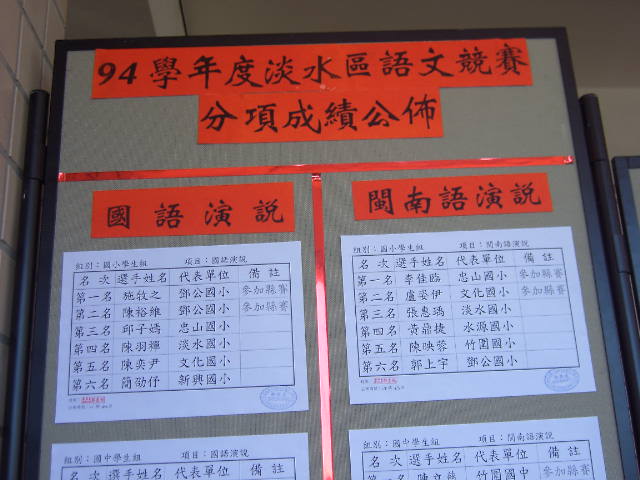 94學年度淡水區語文競賽
分項成績公佈
國語演說
組別：國小學生組 項目：國語演說
名次 選手姓名 代表單位 備註
第一名 施牧之 鄧公國小 參加縣賽
第二名 陳裕維 鄧公國小 參加縣賽
第三名 邱子嫣 忠山國小
第四名 陳羽禪 淡水國小
第五名 陳奕尹 文化國小
第六名 簡劭伃 新興國小
組別：國中學生組 項目：國語演說
名次 選手姓名 代表單位 備註
閩南語演說
組別：國小學生組 項目：閩南語演說
名次 選手姓名 代表單位 備註
第一名 李佳臨 忠山國小 參加縣賽
第二名 盧姿伊 文化國小 參加縣賽
第三名 張惠瑀 淡水國小
第四名 黃鼎捷 水源國小
第五名 陳映蓉 竹圍國小
第六名 郭上宇 鄧公國小
組別：國中學生組 項目：閩南語演說
名次 選手姓名 代表單位 備註
第一名 竹圍國中 參加縣賽